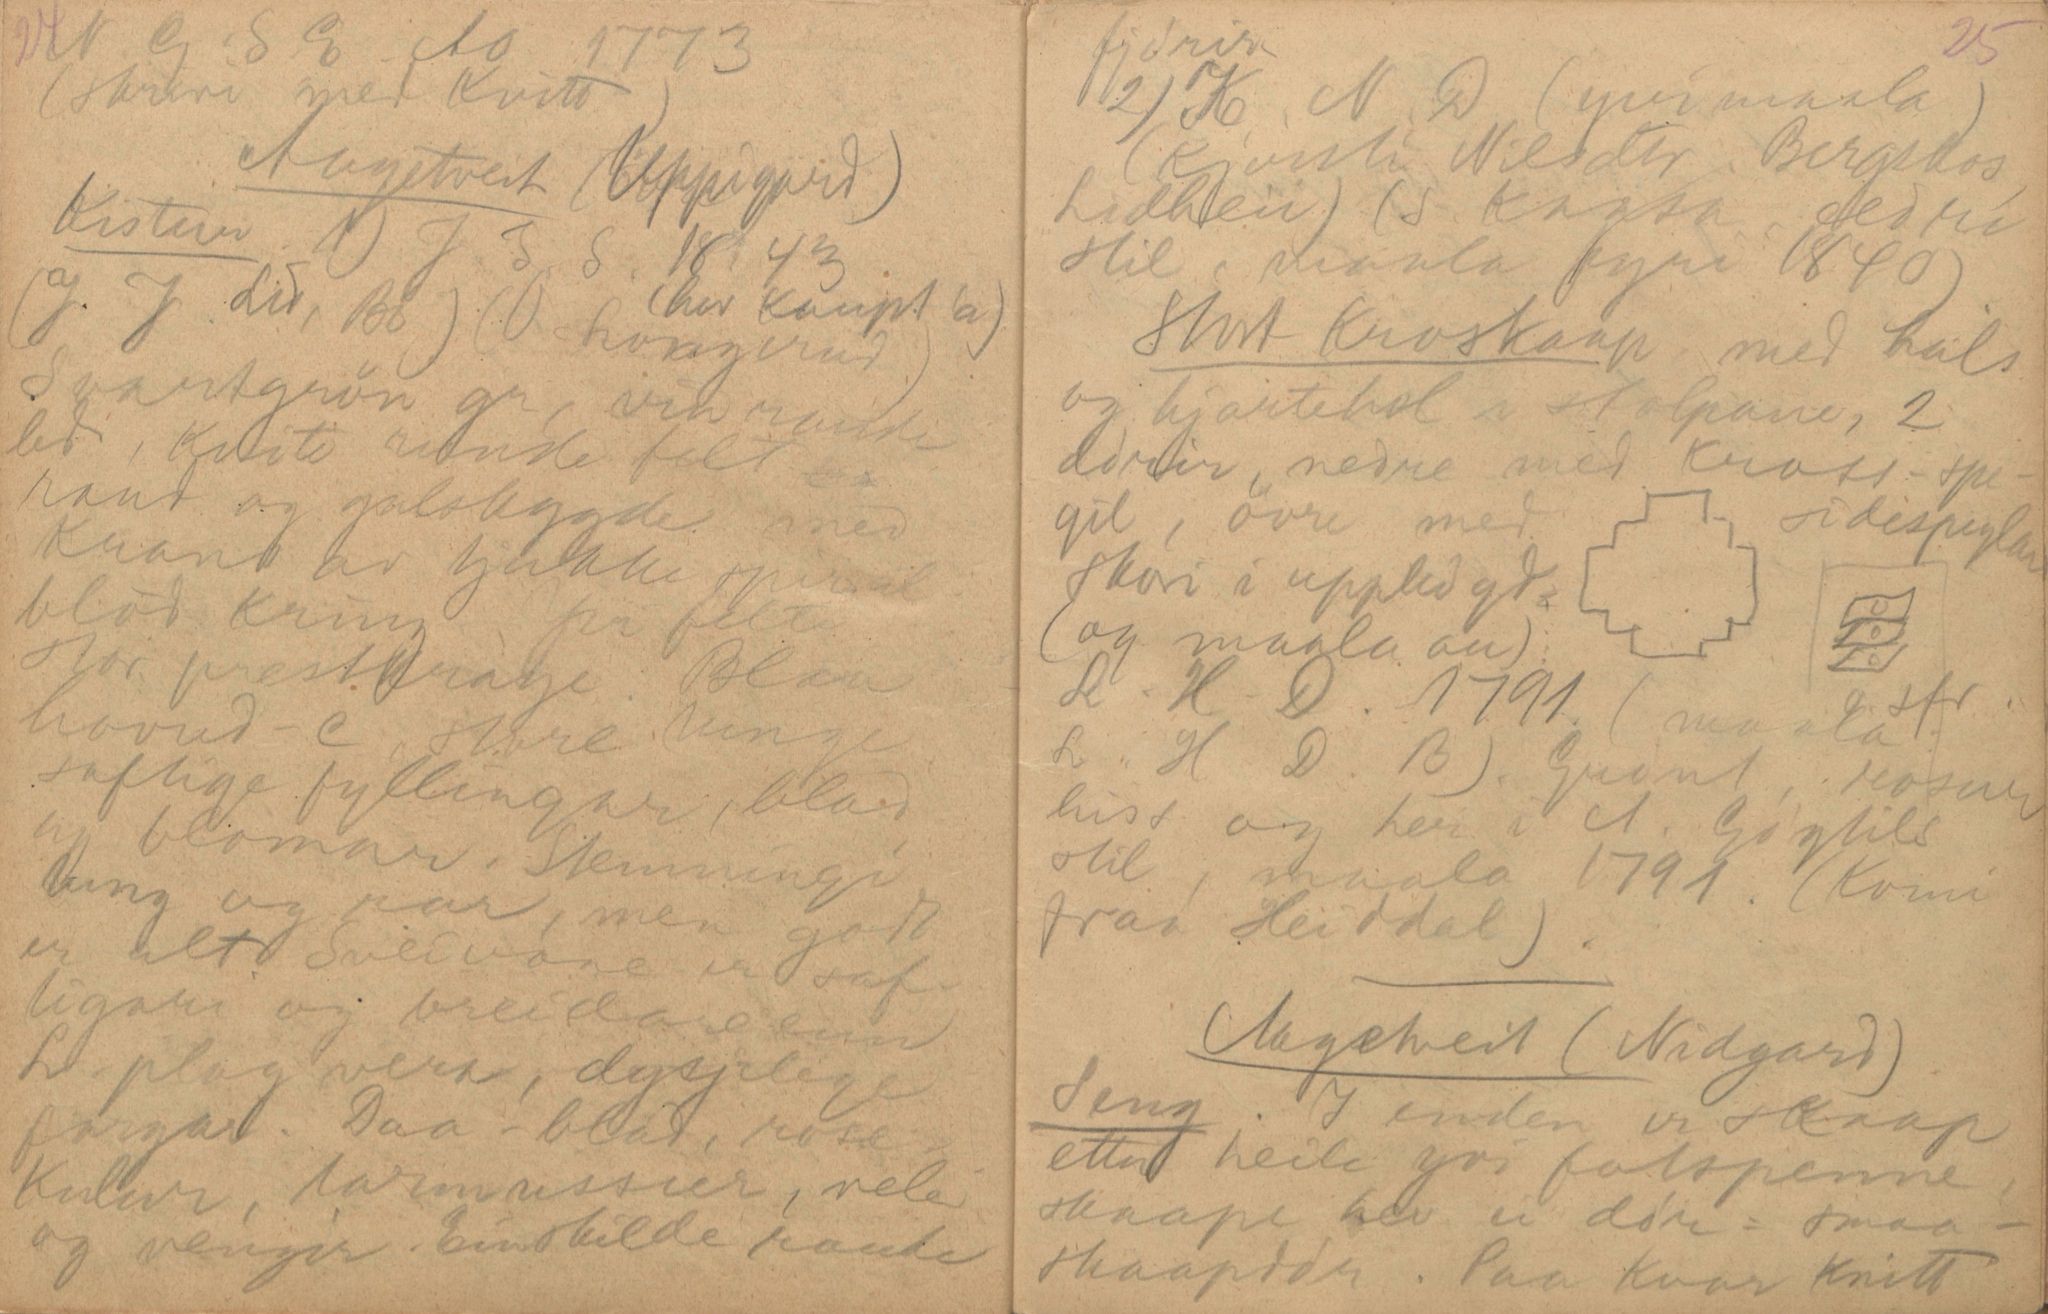 24
N G S E Ao 1773
(skrivi med Kvitt)
Aagetveit (Uppigard)
Kistur. 1) J S. S. 1843
(J. J Lid, Bö) (O (hev kaupt a)
Svartgrön gr, vinraude
led, Kvite runde felt
raud og gulskyggde med
Krans av tjukke spiral
blöd kring på felte
stor prestkrage. Blaa
hovud-C, store tunge
saftige fyllingar, blad
og blomar. Stemningi
tung og rar, men godt
er alt. Sveivane er saf-
tigare og breidare enn
L plag vera, dysjelege
fargar. Daa-blad, rose,
Kular, og vengir. Einskilde raude
25
fjörir
2) K. N. D (yvimaala)
(Kjersti Nilsdtr Bergskos
Lidhein) (S Kaasa nedri
stil, maala fyri 1840)
Stort Kroskaap med hals
og hjartehol i stolpane, 2
dörir, nedre med Kross-spe-
gil, övre med sidespeglar
skori i upplögd
(og maala au)
L. H D. 1791. (maala
L. H D. B). Grönt, rosur
hist og her i A. Göytils
stil, maala 1791. (Komi
fraa Heiddal).
Aagetveit (Nidgard)
Seng. I enden er skaap
etter heile yvi fotspenne,
skaape hev ei dör = smaa-
skaapdör. Paa Kvar Knitt